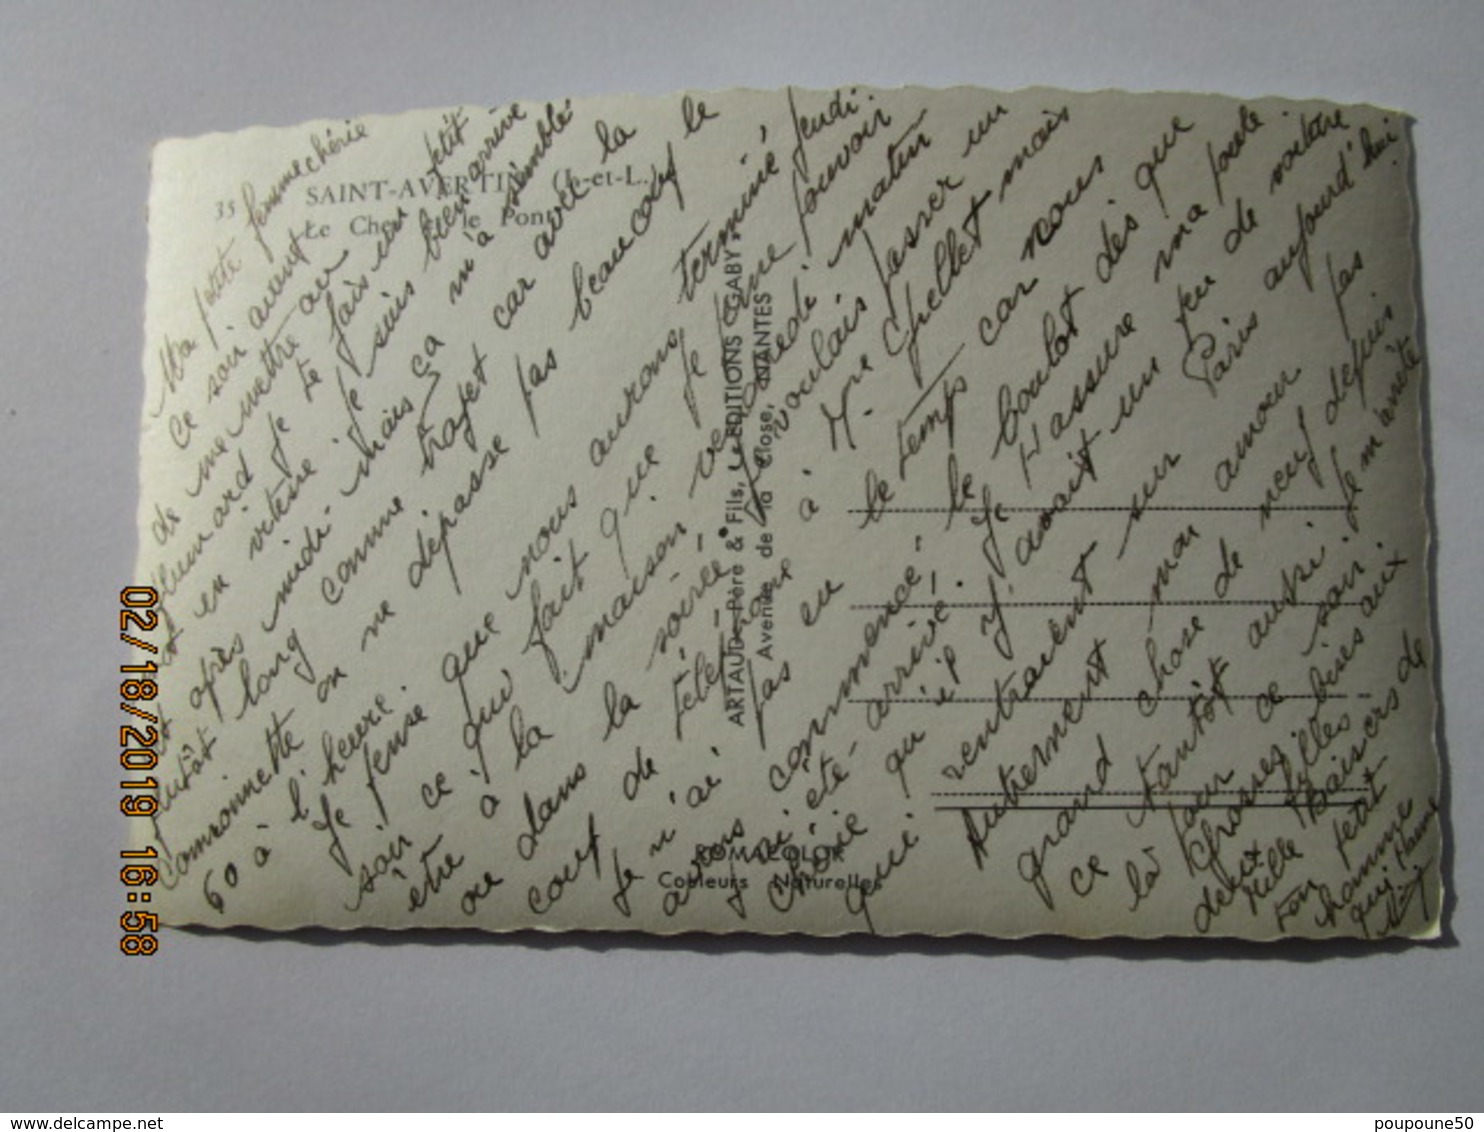 35 SAINT-AVERTIN (I.-et-L.)
Le Cher et le Pont
Ma petite femme chérie
Ce soir avant
de me mettre au
plumard je te fais un petit
et en vitesse je suis bien arrivé
après midi mais ça m'a semblé
plutôt long comme trajet car avec la
Camionnette on ne dépasse pas beaucoup le
60 à l'heure.
Je pense que nous aurons terminé jeudi.
soir ce qui fait que je pense pouvoir
être à la maison vendredi matin
ou dans la soirée. Je voulais passer un
coup de téléphone à Mme Chellet mais
Je n'ai pas eu le temps car nous
avons commencé le boulot dès que
j'ai été arrivé. Je t'assure ma poule
chérie qu'il y avait un peu de voiture
qui rentraient sur Paris aujourd'hui
Autrement mon amour pas
grand chose de neuf depuis
ce tantôt aussi. Je m'arrête
là pour ce soir
Grosses bises aux
deux filles
Mille Baisers de
ton petit
homme
qui t'aime
ARTAUD Père & Fils, EDITIONS "GABY"
Avenue de la Close, NANTES
ROMACOLOR
Couleurs Naturelles
02/18/2019 16:58
poupoune50